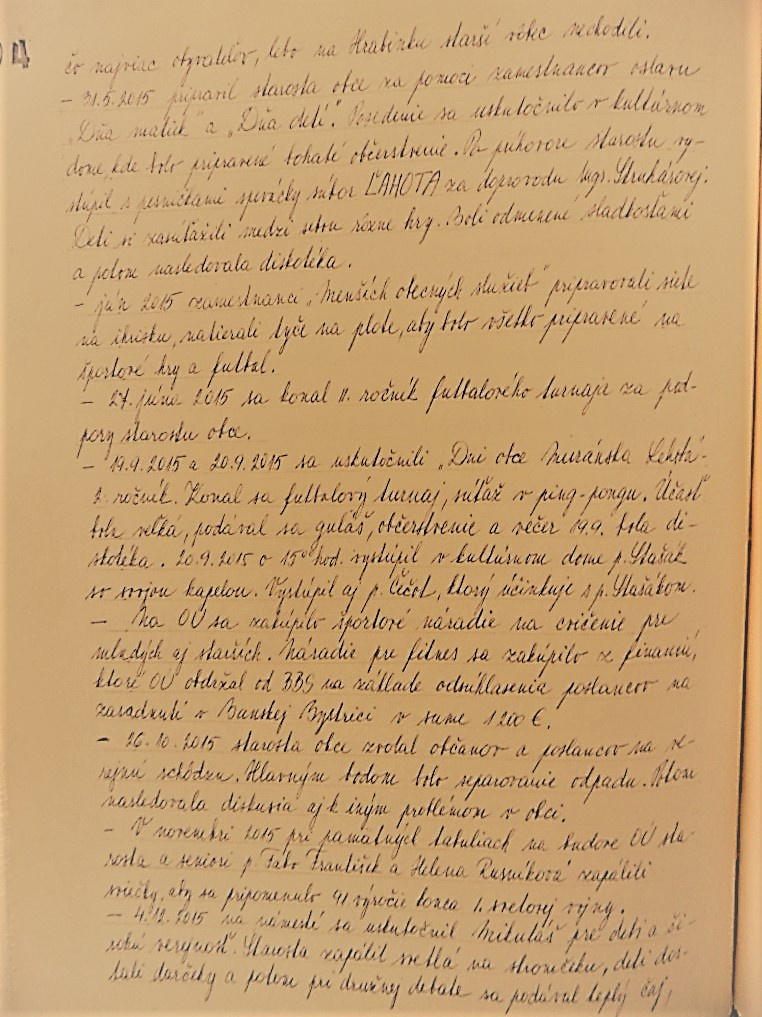 4
čo najviac obyvateľov, lebo na Hrabinku starší vôbec nechodeli.
– 31.5.2015 pripravil starosta obce za pomoci zamestnancov oslavu
„Dňa matiek“ a „Dňa detí“. Posedenie sa uskutočnilo v kultúrnom
dome, kde bolo pripravené bohaté občerstvenie. Po príhovore starostu vy-
stúpil s pesničkami spevácky súbor ĽAHOTA za doprovodu Mgr. Struhárovej.
Deti si zasúťažili medzi sebou rôzne hry. Boli odmenené sladkosťami
a potom nasledovala diskotéka.
– jún 2015 zamestnanci „Menších obecných služieb“ pripravovali siete
na ihrisku, natierali tyče na plote, aby bolo všetko pripravené na
športové hry a futbal.
– 27. júna 2015 sa konal II. ročník futbalového turnaja za pod-
pory starostu obce.
– 19.9.2015 a 20.9.2015 sa uskutočnili „Dni obce Muránska Lehota-
2. ročník. Konal sa futbalový turnaj, súťaž v ping-pongu. Účasť
bola veľká, podával sa guláš, občerstvenie a večer 19.9. bola di-
skotéka. 20.9.2015 o 15⁰⁰ hod. vystúpil v kultúrnom dome p. Stašák
so svojou kapelou. Vystúpil aj p. Čečot, ktorý účinkuje s p. Stašákom.
– Na OÚ sa zakúpilo športové náradie na cvičenie pre
mladých aj starších. Náradie pre fitnes sa zakúpilo z financií,
ktoré OÚ obdržal od BBS na základe odsúhlasenia poslancov na
zasadnutí v Banskej Bystrici v sume 1 200 €.
– 26.10.2015 starosta obce zvolal občanov a poslancov na ve-
rejnú schôdzu. Hlavným bodom bolo separovanie odpadu. Potom
nasledovala diskusia aj k iným problémom v obci.
– V novembri 2015 pri pamätných tabuliach na budove OÚ sta-
rosta a seniori p. Fábo František a Helena Rusniková zapálili
sviečky, aby sa pripomenulo 91 výročie konca 1. svetovej vojny.
– 4.12.2015 na námestí sa uskutočnil Mikuláš pre deti a ši-
rokú verejnosť. Starosta zapálil svetlá na stromčeku, deti dos-
tali darčeky a potom pri družnej debate sa podával teplý čaj,